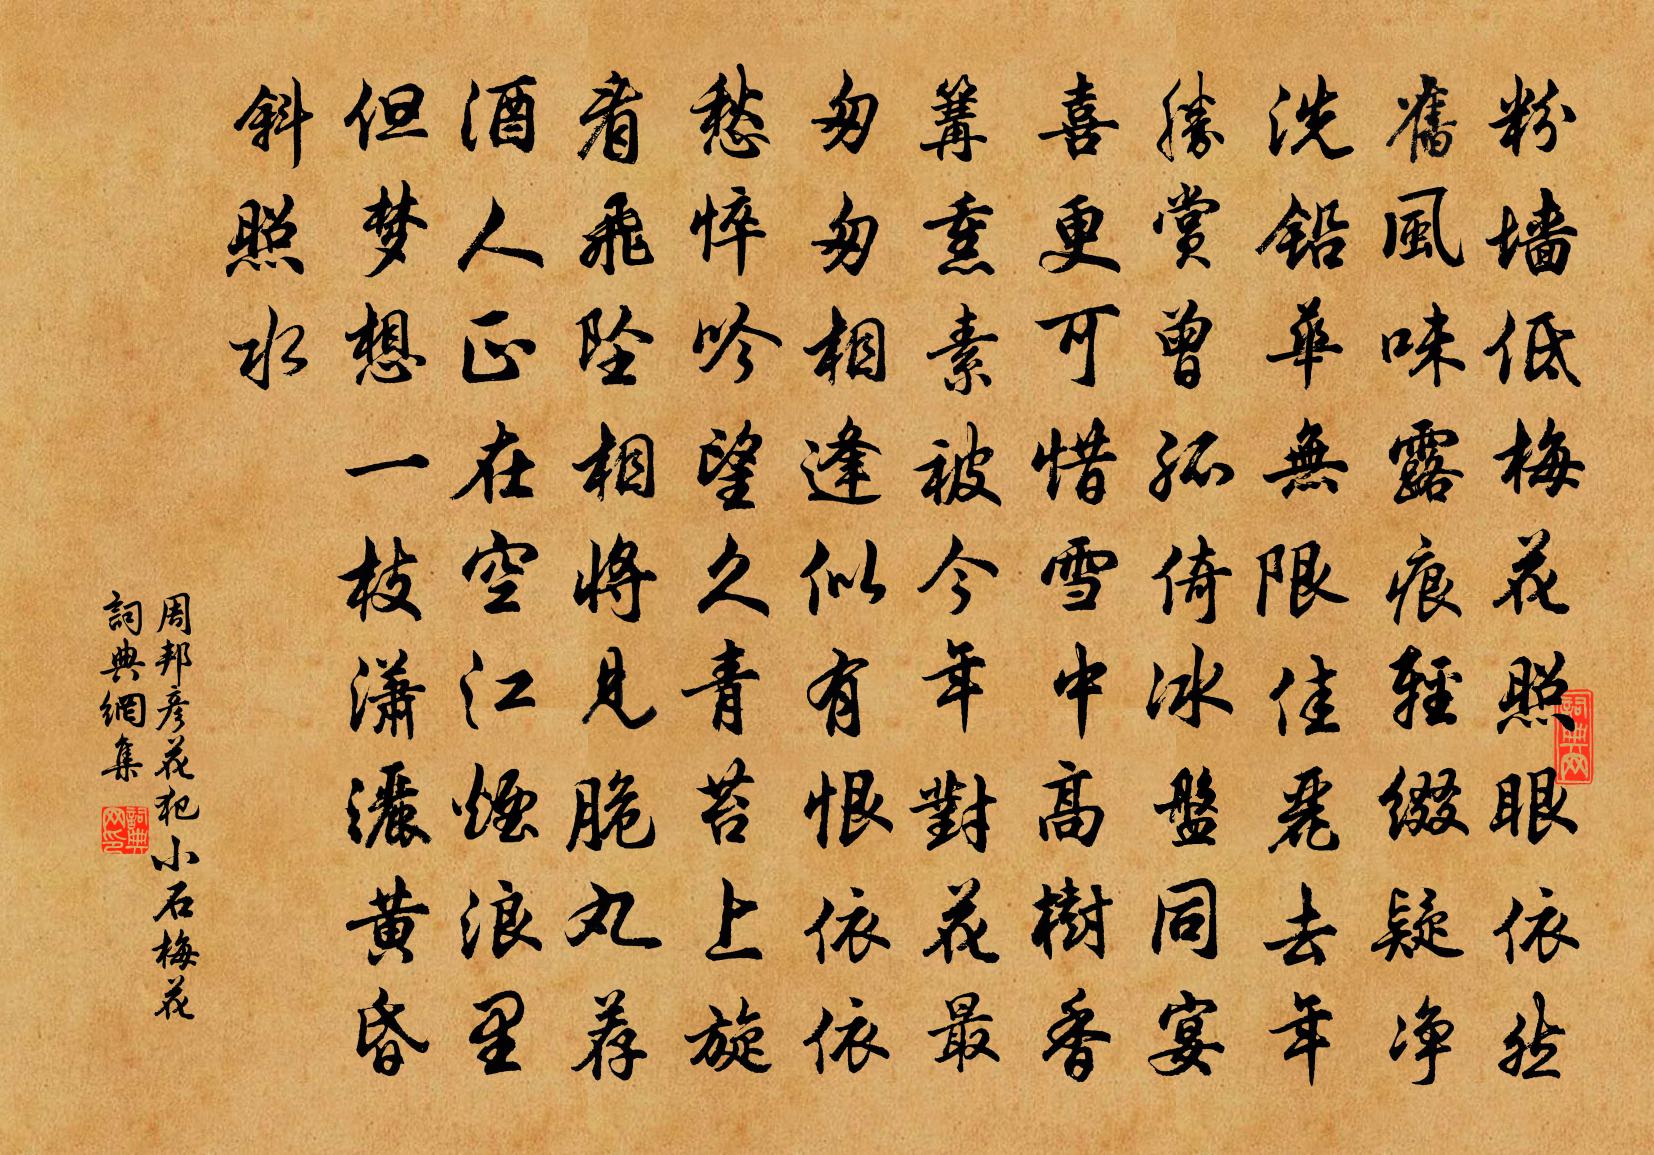 粉墙低梅花照眼依然
舊風味露痕輕缀疑净
洗鉛華無限佳麗去年
勝赏曾孤倚冰盤同宴
喜更可惜雪中高樹香
篝熏素被今年對花最
匆匆相逢似有恨依依
愁悴吟望久青苔上旋
看飛坠相將見脆丸荐
酒人正在空江煙浪里
但梦想一枝潇灑黄昏
斜照水
周邦彦花犯小石梅花
詞典網集
詞典网
詞典网印